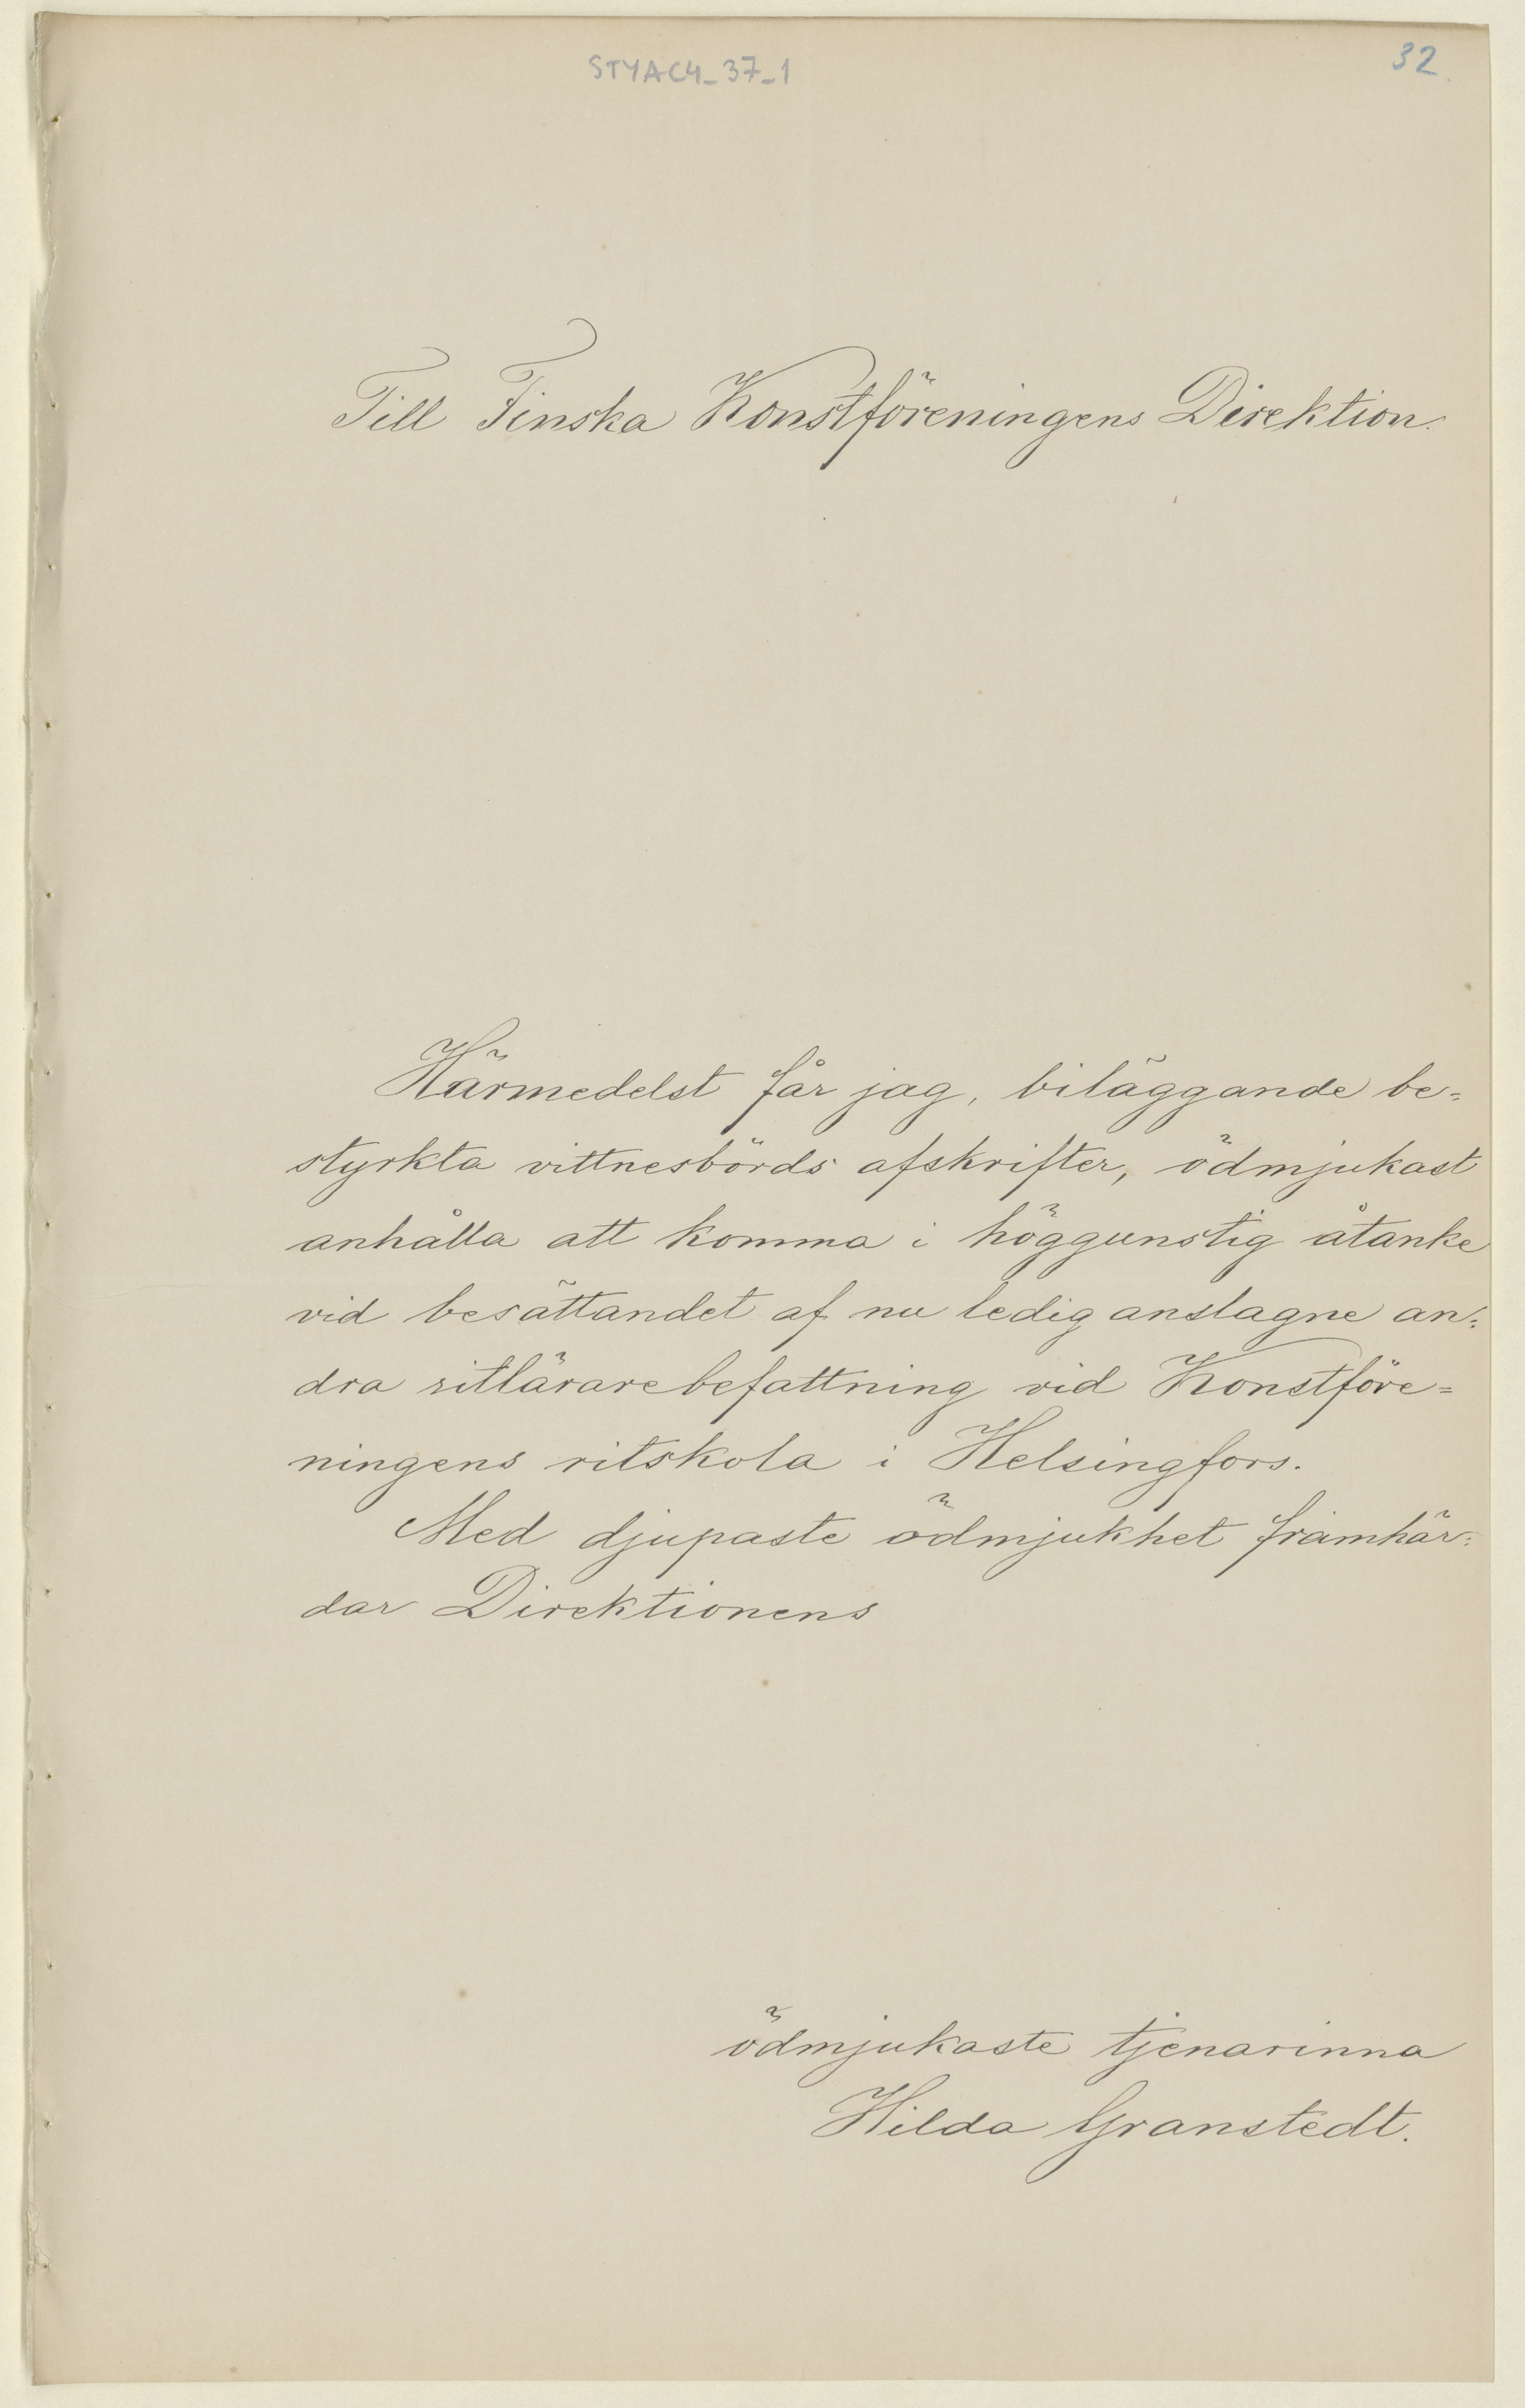 STYAC4_37_1
32.
Till Finska Konstföreningens Direktion.
Härmedelst får jag, biläggande be=
styrkta vittnesbörds afskrifter, ödmjukast
anhålla att komma i höggunstig åtanke
vid besättandet af nu ledig anslagne an=
dra ritlärarebefattning vid Konstföre=
ningens ritskola i Helsingfors.
Med djupaste ödmjukhet framhär=
dar Direktionens
ödmjukaste tjenarinna
Hilda Granstedt.